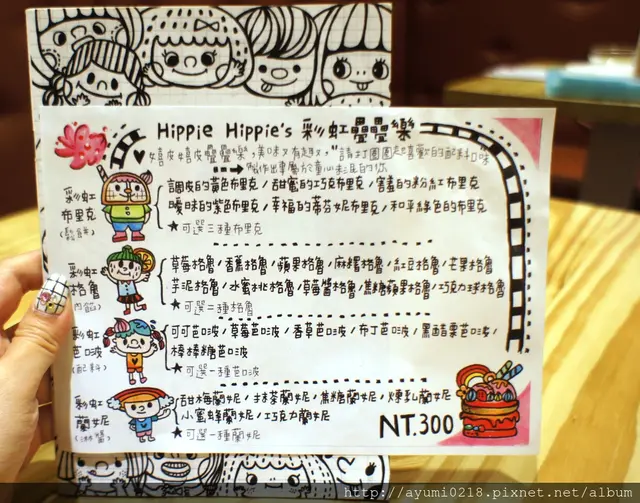 Hippie Hippie's 彩虹疊疊樂
嬉皮嬉皮疊疊樂,美味又有趣,"請打圈圈起喜歡的配料口味
製作出專屬於童心彩虹的你
彩虹
布里克
(鬆餅)
調皮的黃色布里克/甜蜜的巧克布里克/害羞的粉紅布里克
曖昧的紫色布里克/幸福的蒂芬妮布里克/和平綠色的布里克
★可選三種布里克
彩虹
格魯
(內餡)
草莓格魯/香蕉格魯/蘋果格魯/麻糬格魯/紅豆格魯/芒果格魯
芋泥格魯/水蜜桃格魯/草莓醬格魯/焦糖蘋果格魯/巧克力球格魯
★可選二種格魯
彩虹
芭啵
(配料)
可可芭啵/草莓芭啵/香草芭啵/布丁芭啵/黑醋栗芭啵/
棒棒糖芭啵
★可選一種芭啵
彩虹
蘭妮
(淋醬)
甜梅蘭妮/抹茶蘭妮/焦糖蘭妮/煉乳蘭妮
小蜜蜂蘭妮/巧克力蘭妮
★可選一種蘭妮
NT.300
http://ayumi0218.pixnet.net/album